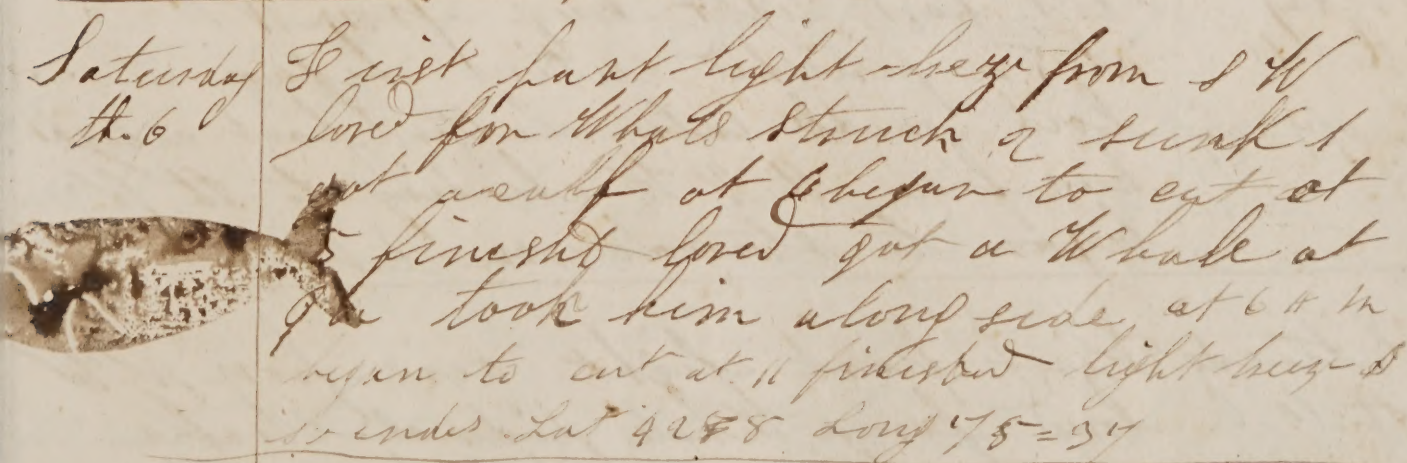 Saturday
th. 6
First part light breze from S W
lored for Whals struck 2 sunk 1
got a calf at 6 began to cut at
5 finishd lored got a Whale at
took him along side at 6 A M
began to cut at 11 finished light breeze
so endes Lat 42 8 Long 75=37